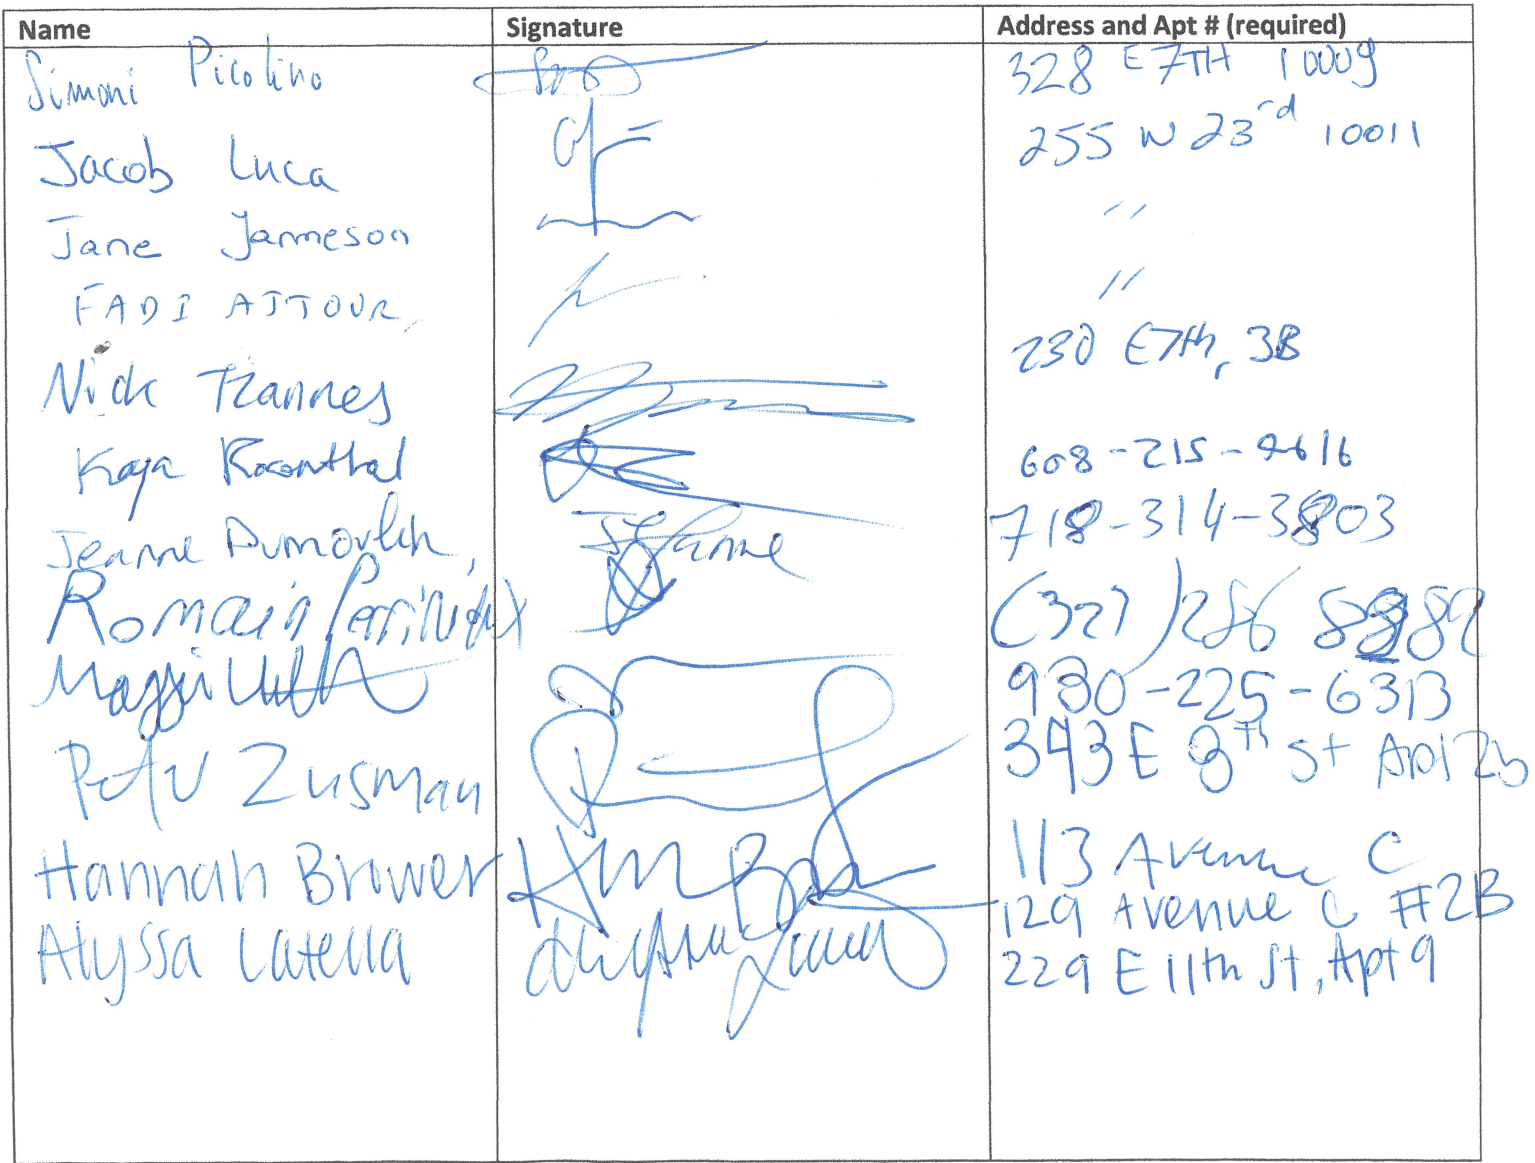 Name Signature Address and Apt # (required)
Simoni Picolino 328 E 7TH 10009
Jacob Luca 255 W 23rd 10011
Jane Jammeson "
FADI AJJOUR "
Nick Tzannes 230 E7th, 3B
Kaja 608-215-9616
Jeanne Dumoulin, Jeanne 718-314-3803
Romain (327) 286
Maggi 930-225-6313
Zusman 343 E 8th St Apt 2b
113 Avenue C
Hannah Brower 129 Avenue C #2B
Alyssa Latella 229 E 11th St, Apt 9